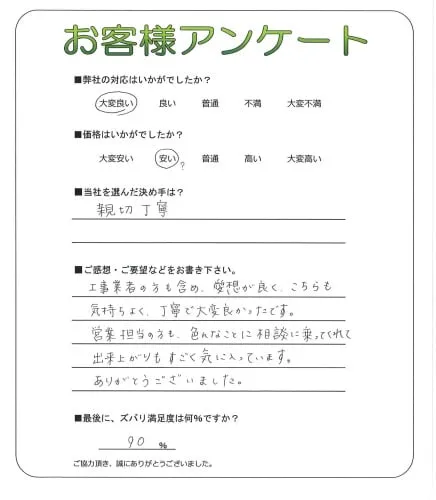 お客様アンケート
■弊社の対応はいかがでしたか？
大変良い 良い 普通 不満 大変不満
■価格はいかがでしたか？
大変安い 安い ? 普通 高い 大変高い
■当社を選んだ決め手は？
親切丁寧
■ご感想・ご要望などをお書き下さい。
工事業者の方も含め、愛想が良く、こちらも
気持ちよく、丁寧で大変良かったです。
営業担当の方も、色んなことに相談に乗ってくれて
出来上がりもすごく気に入っています。
ありがとうございました。
■最後に、ズバリ満足度は何％ですか？
90 ％
ご協力頂き、誠にありがとうございました。